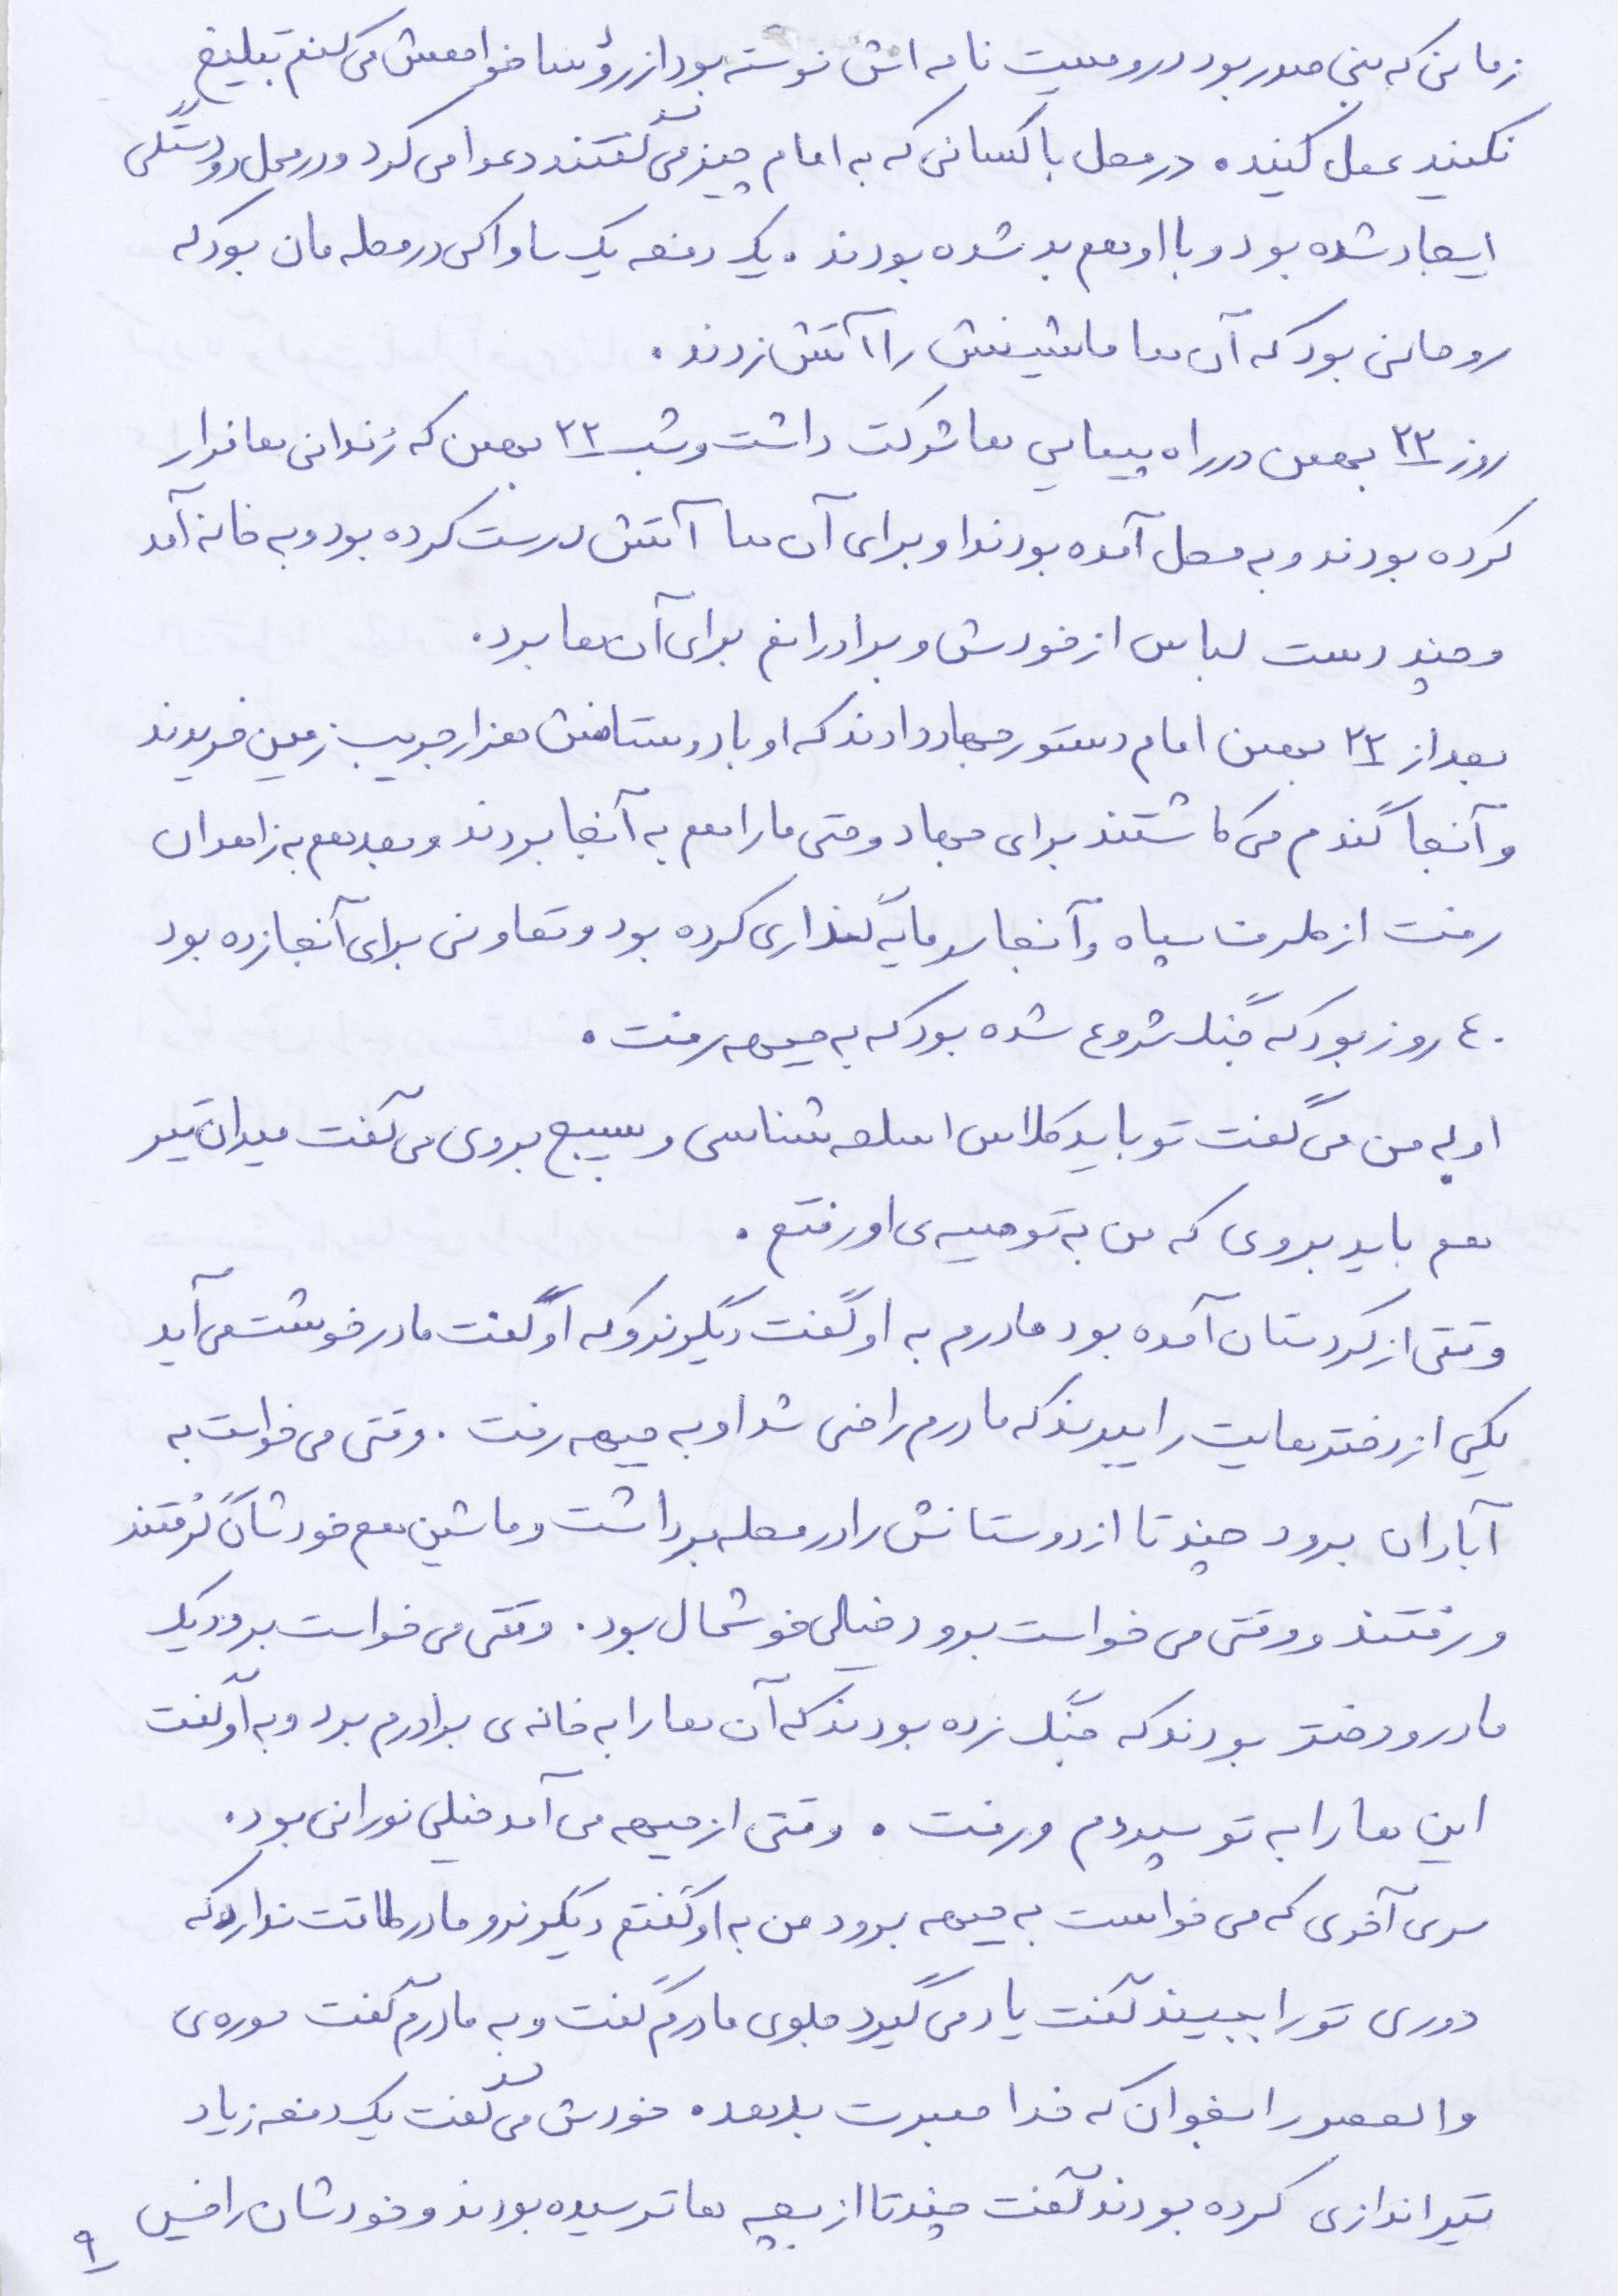 زمانی که بنی صدر بود در وصیت نامه اش نوشته بود از رؤسا خواهش می کنم تبلیغ
نکنید عمل کنید. در محل با کسانی که به امام چیز می گفتند دعوا می کرد و در محل دو دستگی
ایجاد شده بود و با او هم بد شده بودند. یک دفعه یک ساواکی در محله مان بود که
روحانی بود که آن ها ماشینش را آتش زدند.
روز ۲۲ بهمن در راه پیمایی ها شرکت داشت و شب ۲۲ بهمن که زندانی ها فرار
کرده بودند و به محل آمده بودند او برای آن ها آتش درست کرده بود و به خانه آمد
و چند دست لباس از خودش و برادرانم برای آن ها برد.
بعد از ۲۲ بهمن امام دستور جهاد دادند که او با دوستانش هزار جریب زمین خریدند
و آنجا گندم می کاشتند برای جهاد و حتی ما را هم به آنجا بردند و بعد هم به زاهدان
رفت از طرف سپاه و آنجا سرمایه گذاری کرده بود و تعاونی برای آنجا زده بود
۴۰ روز بود که جنگ شروع شده بود که به جبهه رفت.
او به من می گفت تو باید کلاس اسلحه شناسی و بسیج بروی می گفت میدان تیر
هم باید بروی که من به توصیه ی او رفتم.
وقتی از کردستان آمده بود مادرم به او گفت دیگر نرو که او گفت مادر خوشت می آید
یکی از دخترهایت را ببرند که مادرم راضی شد او به جبهه رفت. وقتی می خواست به
آبادان برود چند تا از دوستانش را در محله برداشت و ماشین هم خودشان گرفتند
و رفتند و وقتی می خواست برود خیلی خوشحال بود. وقتی می خواست برود یک
مادر و دختر بودند که جنگ زده بودند که آن ها را به خانه ی برادرم برد و به او گفت
این ها را به تو سپردم و رفت. وقتی از جبهه می آمد خیلی نورانی بود.
سری آخری که می خواست به جبهه برود من به او گفتم دیگر نرو مادر طاقت ندارد که
دوری تو را ببیند گفت یاد می گیرد جلوی مادرم گفت و به مادرم گفت سوره ی
والعصر را بخوان که خدا صبرت بدهد. خودش می گفت یک دفعه زیاد
تیراندازی کرده بودند گفت چند تا از بچه ها ترسیده بودند و خودشان را خیس
۹